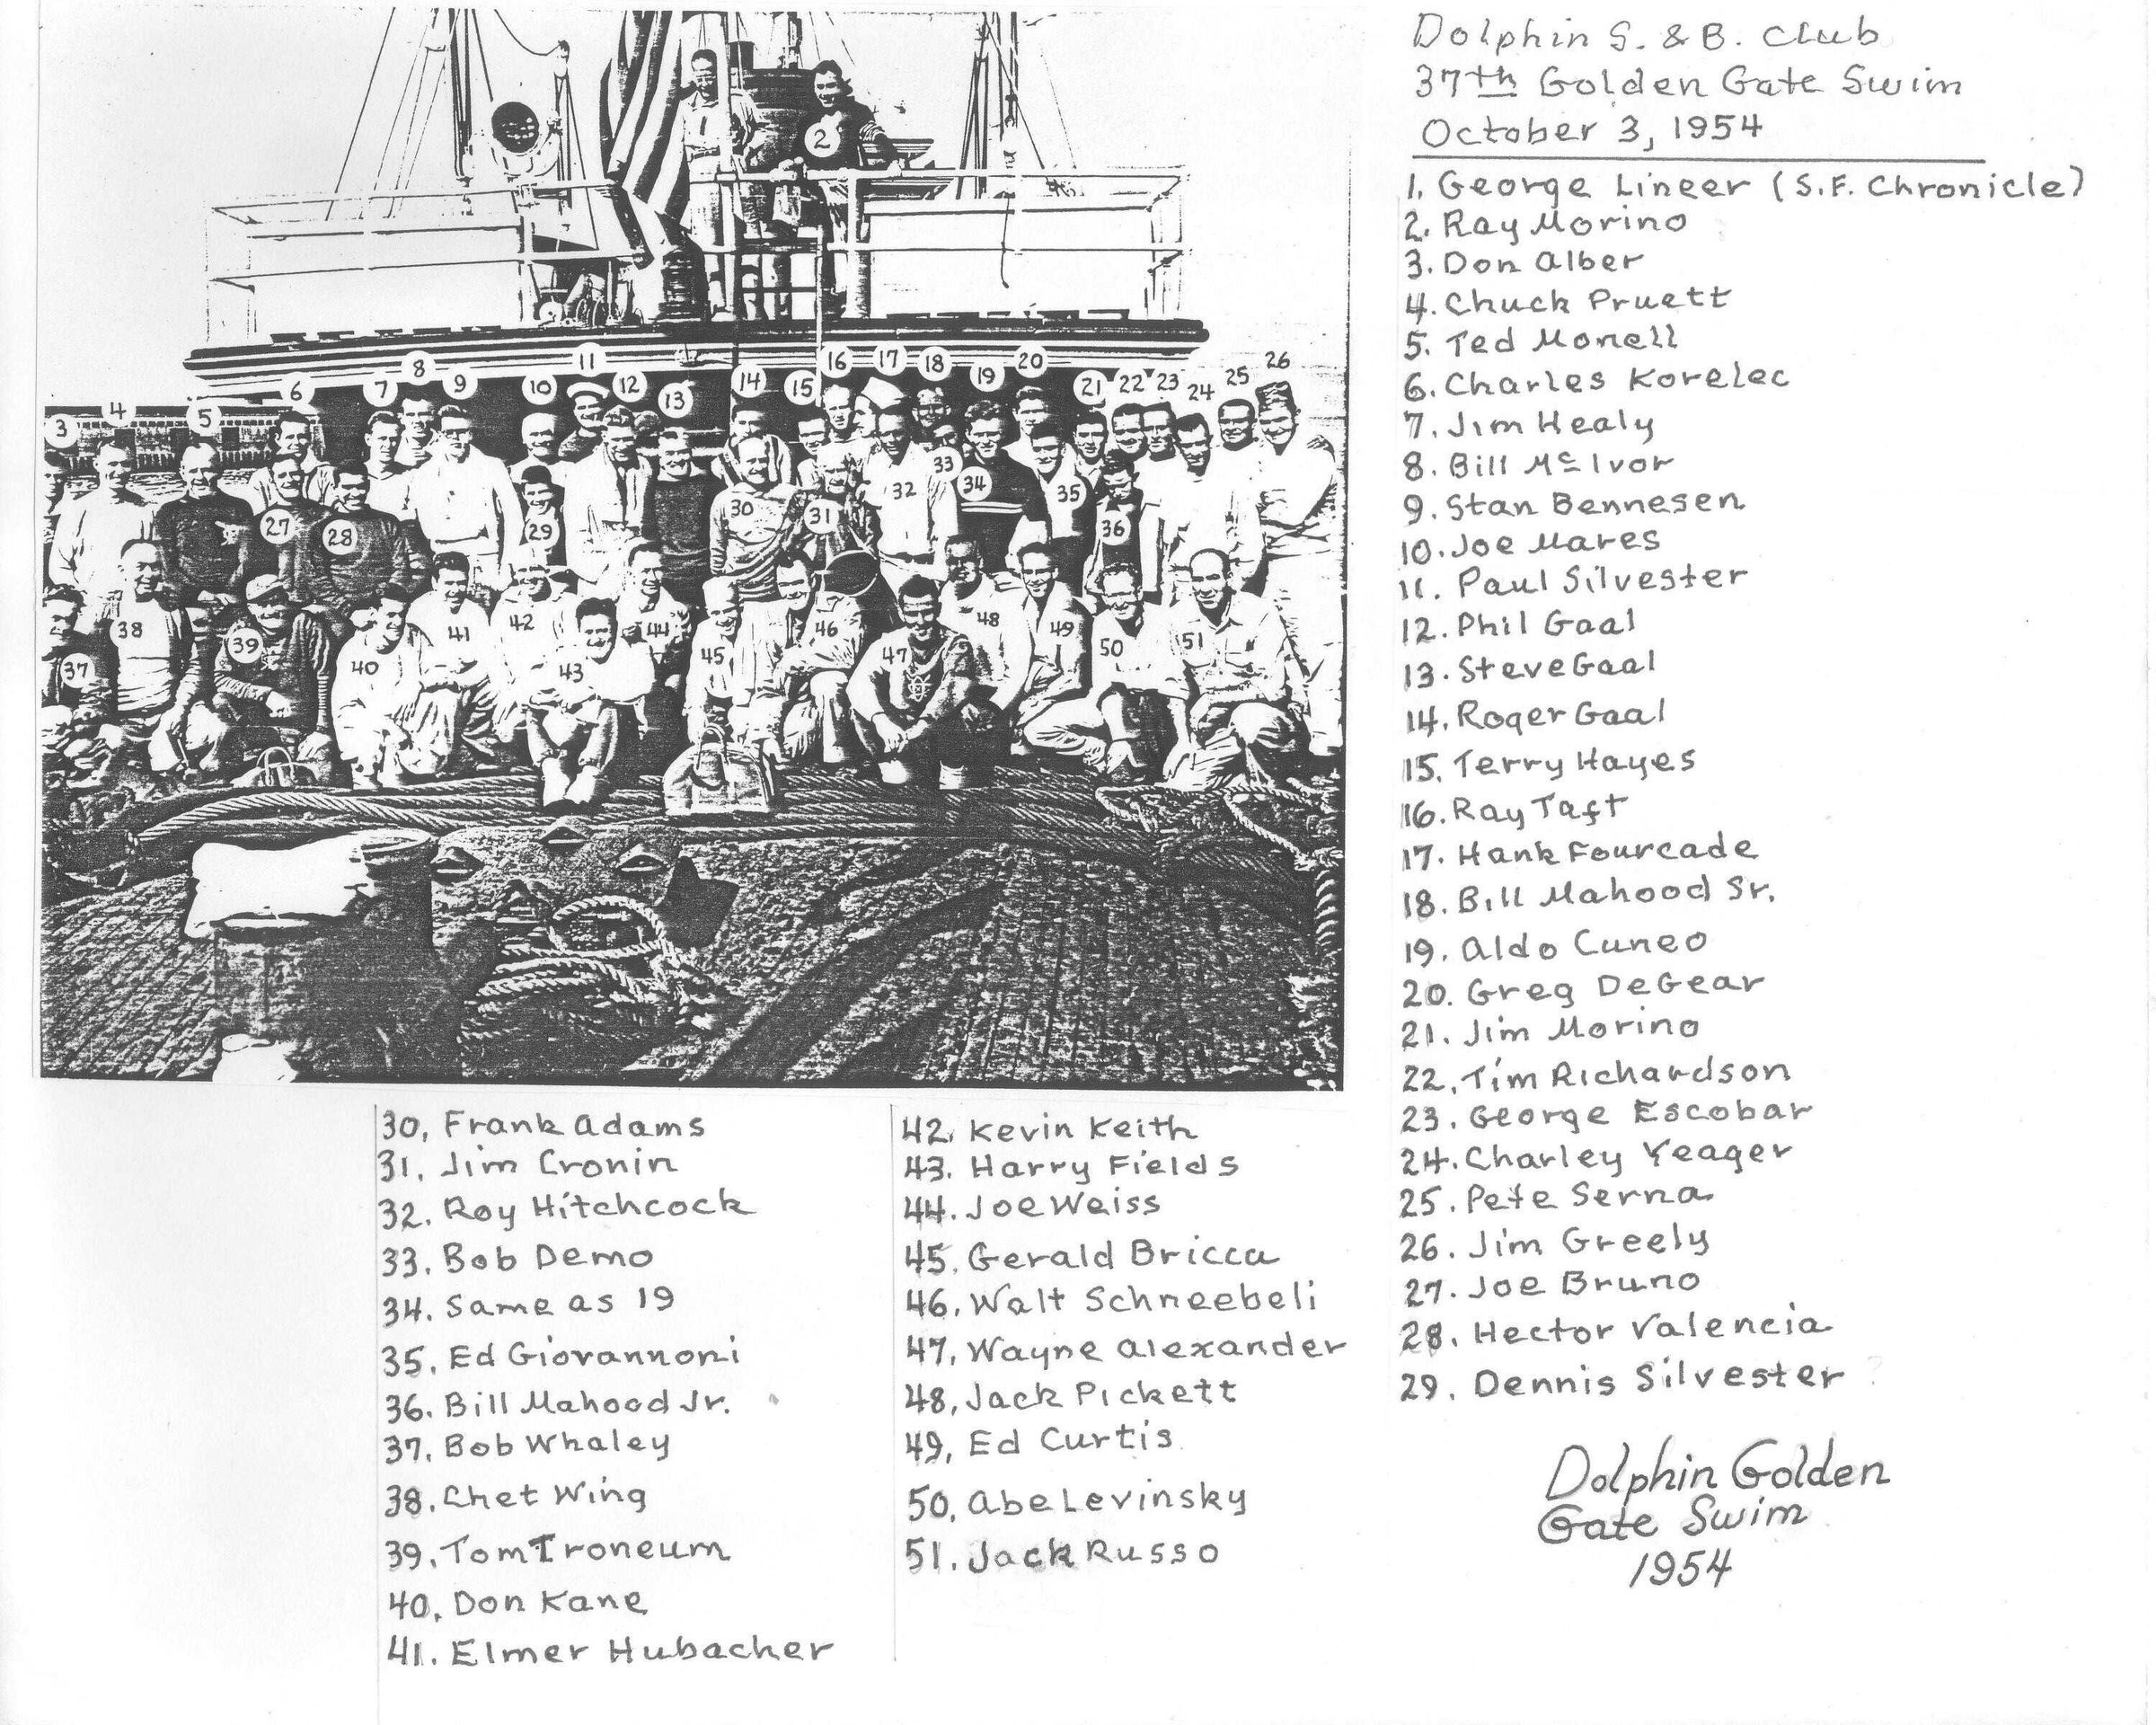 Dolphin S. & B. Club
37th Golden Gate Swim
October 3, 1954
1. George Lineer (S.F. Chronicle)
2. Ray Morino
3. Don Alber
4. Chuck Pruett
5. Ted Monell
6. Charles Korelec
7. Jim Healy
8. Bill Mc Ivor
9. Stan Bennesen
10. Joe Mares
11. Paul Silvester
12. Phil Gaal
13. Steve Gaal
14. Roger Gaal
15. Terry Hayes
16. Ray Taft
17. Hank Fourcade
18. Bill Mahood Sr.
19. Aldo Cuneo
20. Greg DeGear
21. Jim Morino
22. Tim Richardson
23. George Escobar
24. Charley Yeager
25. Pete Serna
26. Jim Greely
27. Joe Bruno
28. Hector Valencia
29. Dennis Silvester
30. Frank Adams
31. Jim Cronin
32. Roy Hitchcock
33. Bob Demo
34. Same as 19
35. Ed Giovannoni
36. Bill Mahood Jr.
37. Bob Whaley
38. Chet Wing
39. Tom Troneum
40. Don Kane
41. Elmer Hubacher
42. Kevin Keith
43. Harry Fields
44. Joe Weiss
45. Gerald Bricca
46. Walt Schneebeli
47. Wayne Alexander
48. Jack Pickett
49. Ed Curtis
50. Abe Levinsky
51. Jack Russo
Dolphin Golden
Gate Swim
1954
1
2
3
4
5
6
7
8
9
10
11
12
13
14
15
16
17
18
19
20
21
22
23
24
25
26
27
28
29
30
31
32
33
34
35
36
37
38
39
40
41
42
43
44
45
46
47
48
49
50
51